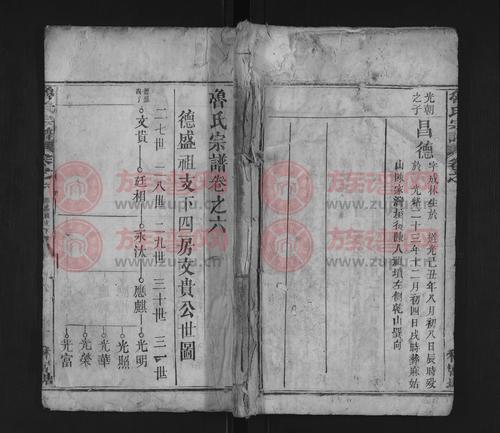 光朝之子
昌德
字成林生於道光己丑年八月初八日辰時歿
於光緒二十三年十二月初四日戌時葬麻姑
山陳家灣祖人祖墳左側乾山巽向
魯氏宗譜卷之六
德盛祖支下四房文貴公世圖
二七世 二八世 二九世 三十世 三一世
德盛四子
文貴 廷相 永汰 應麒 光明
光照
光華
光榮
光富
魯氏宗譜
族譜网
www.zupu.cn